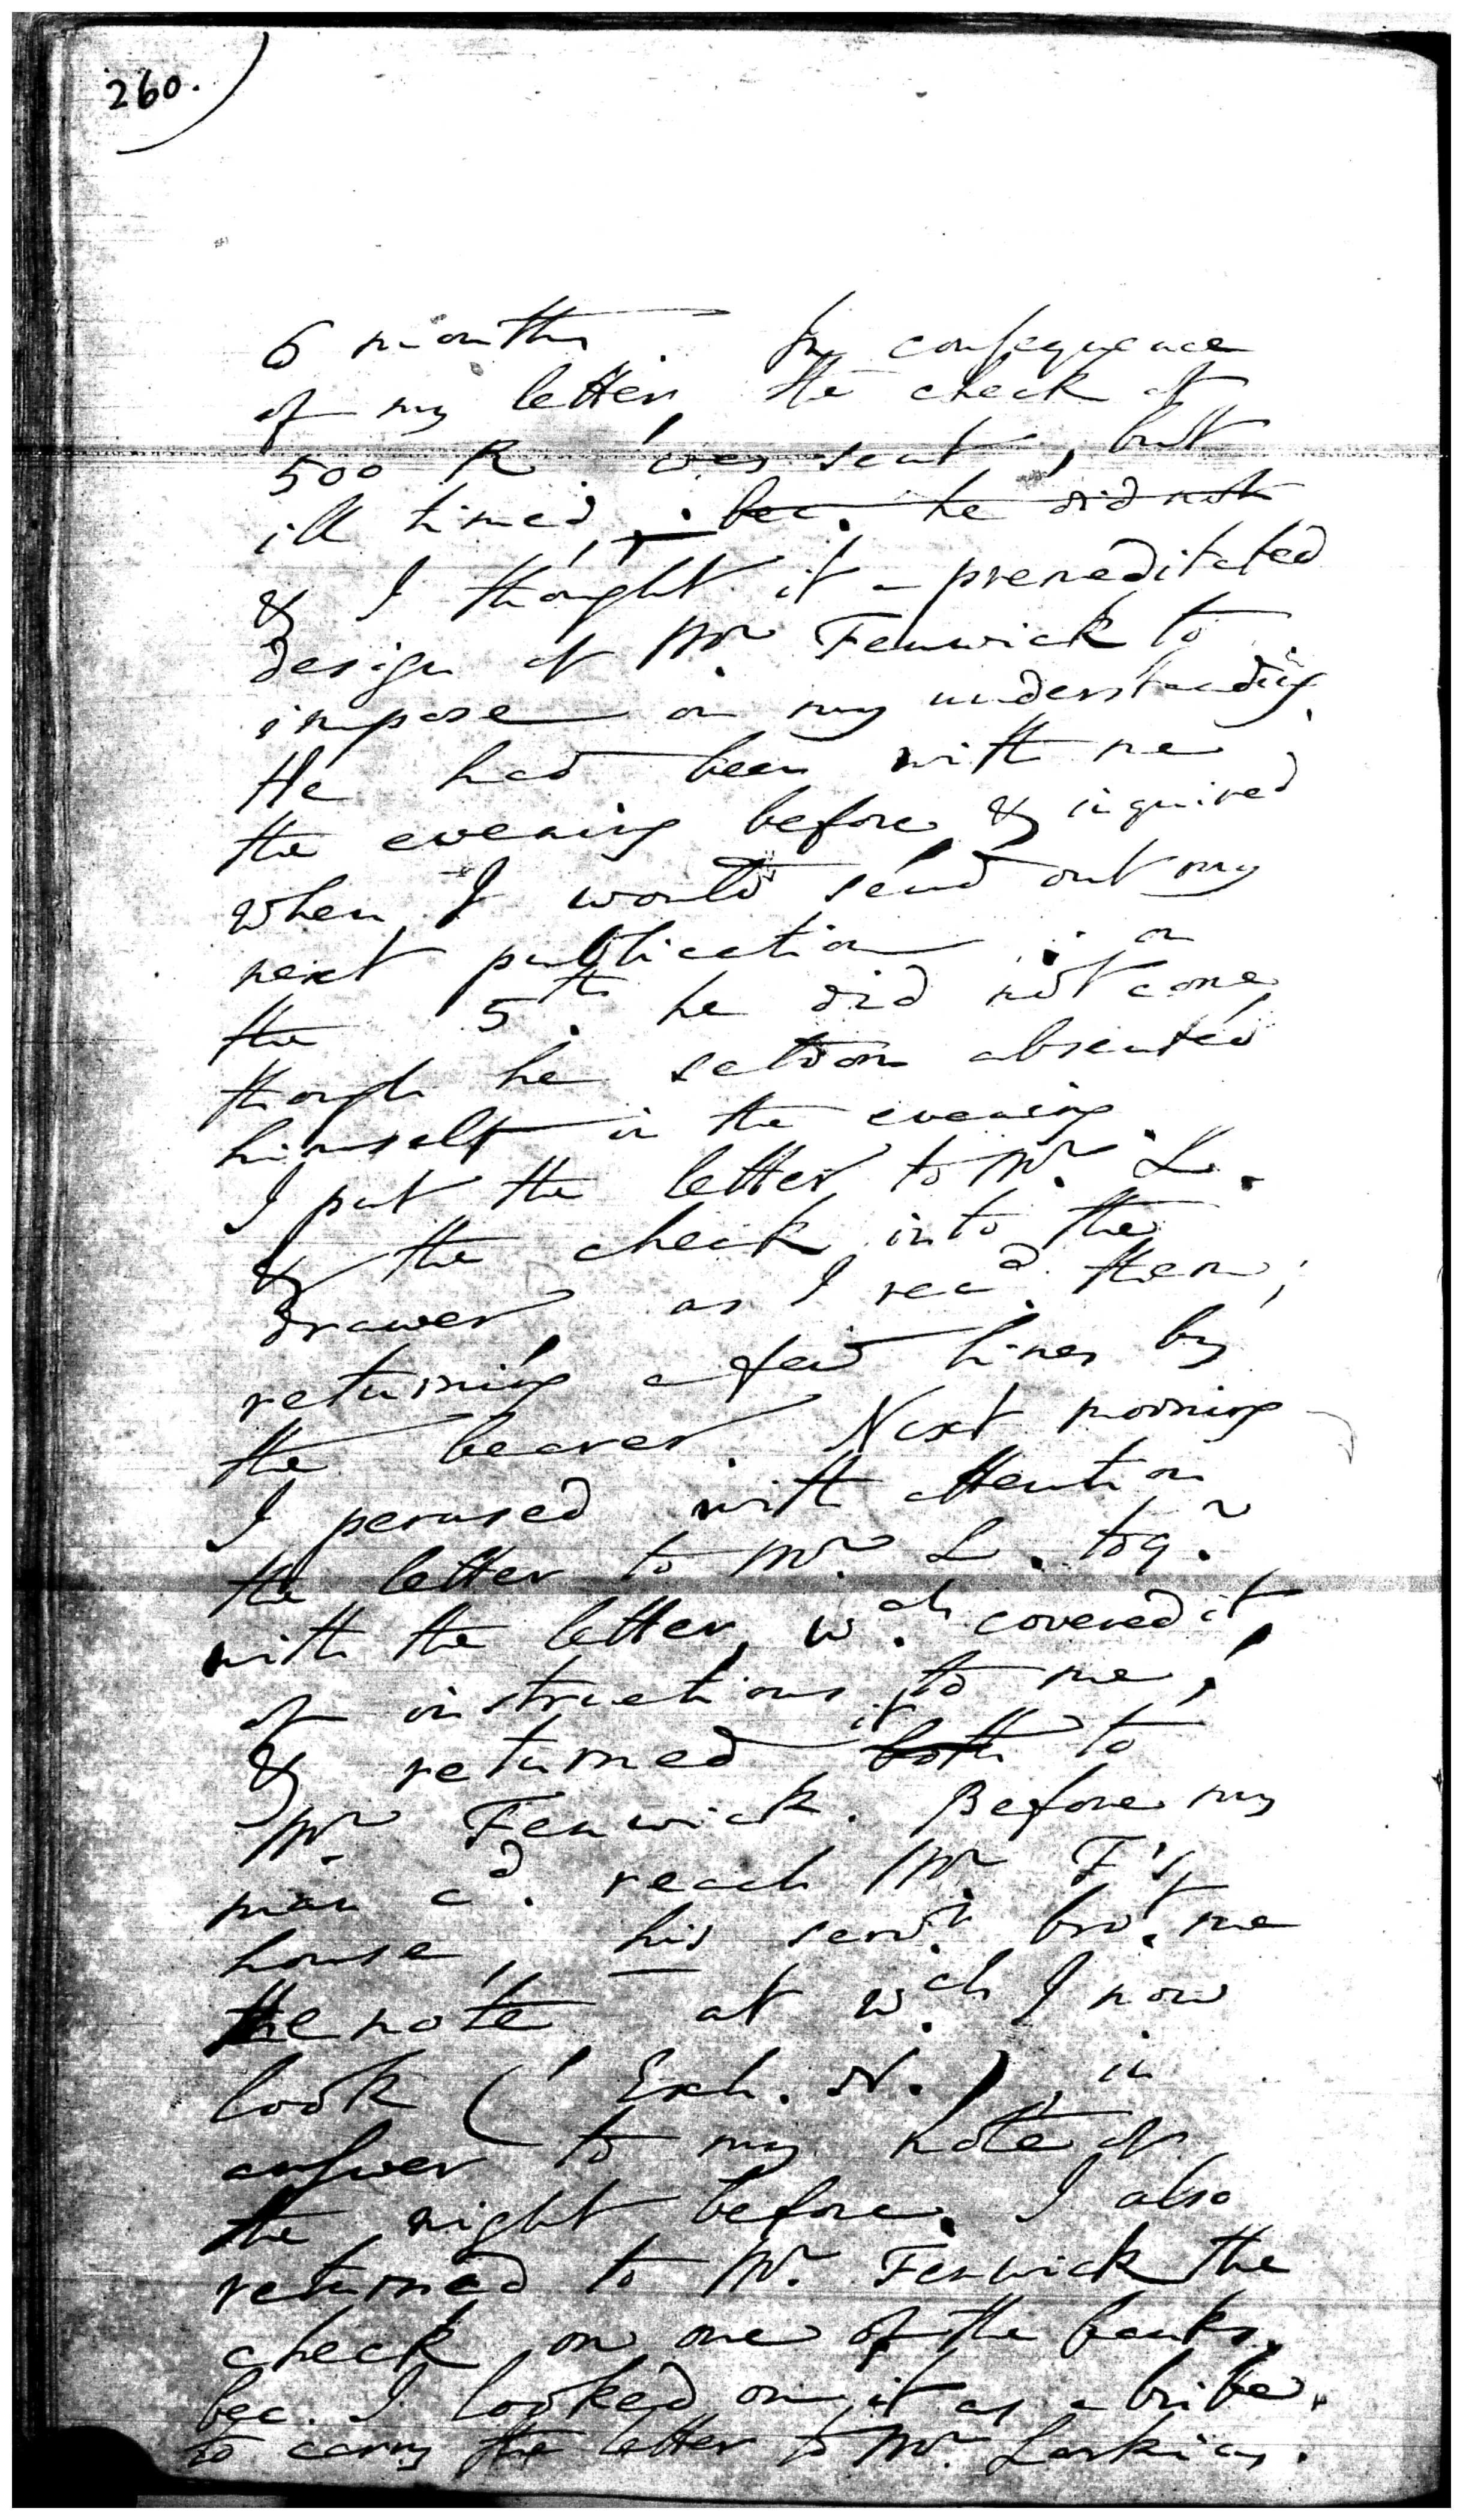 260.
6 months. In consequence
of my letter, the check of
500 R. was sent, but
ill timed, bec. he did not
& I thought it a premeditated
design of Mr. Fenwick to
impose on my understanding.
He had been with me
the evening before, & inquired
when I would send out my
next publication; on
the 5th. he did not come,
though he seldom absented
himself in the evening.
I put the letter to Mr. L.
& the check into the
drawer, as I recd. them;
returning a few lines by
the bearer. Next morning
I perused with attention
the letter to Mr. L. togr.
with the letter, wch. covered it,
of instructions to me,
& returned it both to
Mr. Fenwick. Before my
man cd. reach Mr. F's
house, his servt. brot. me
the note at wch. I now
look (Exh. N.), in
answer to my note of
the night before. I also
returned to Mr. Fenwick the
check on one of the banks,
bec. I looked on it as a bribe,
to carry the letter to Mr. Larkins.